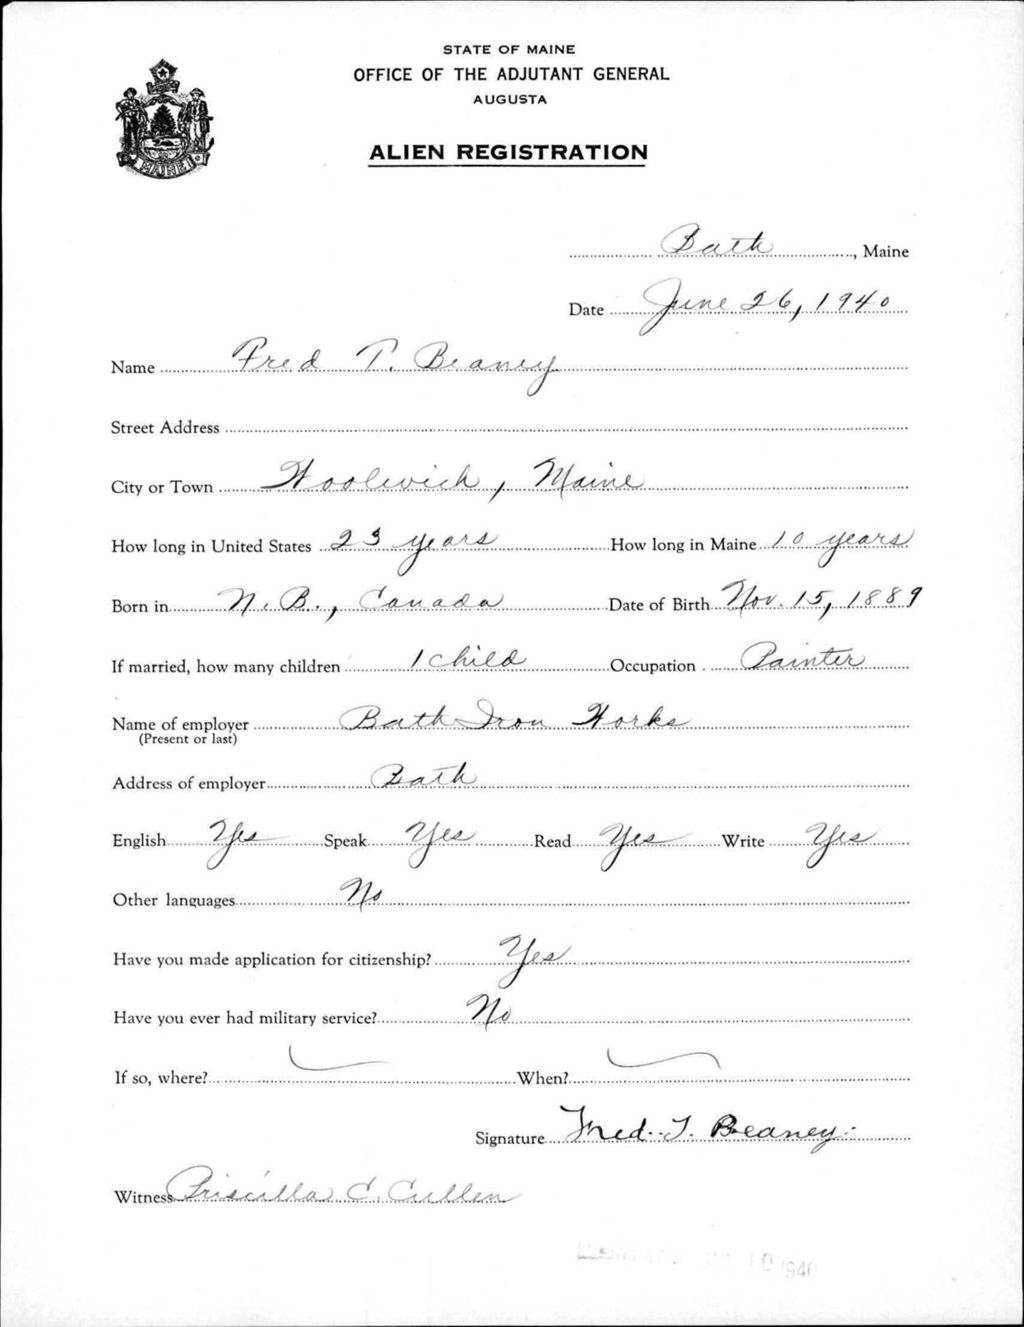 STATE OF MAINE
OFFICE OF THE ADJUTANT GENERAL
AUGUSTA
ALIEN REGISTRATION
MAINE
Bath, Maine
Date June 26, 1940
Name Fred T. Beaney
Street Address
City or Town Woolwich, Maine
How long in United States 23 years How long in Maine 10 years
Born in N. B., Canada Date of Birth Nov. 15, 1889
If married, how many children 1 child Occupation Painter
Name of employer Bath Iron Works
(Present or last)
Address of employer Bath
English Yes Speak Yes Read Yes Write Yes
Other languages No
Have you made application for citizenship? Yes
Have you ever had military service? No
If so, where? When?
Signature Fred. T. Beaney.
Witness Priscilla C. Cullen
10 1940